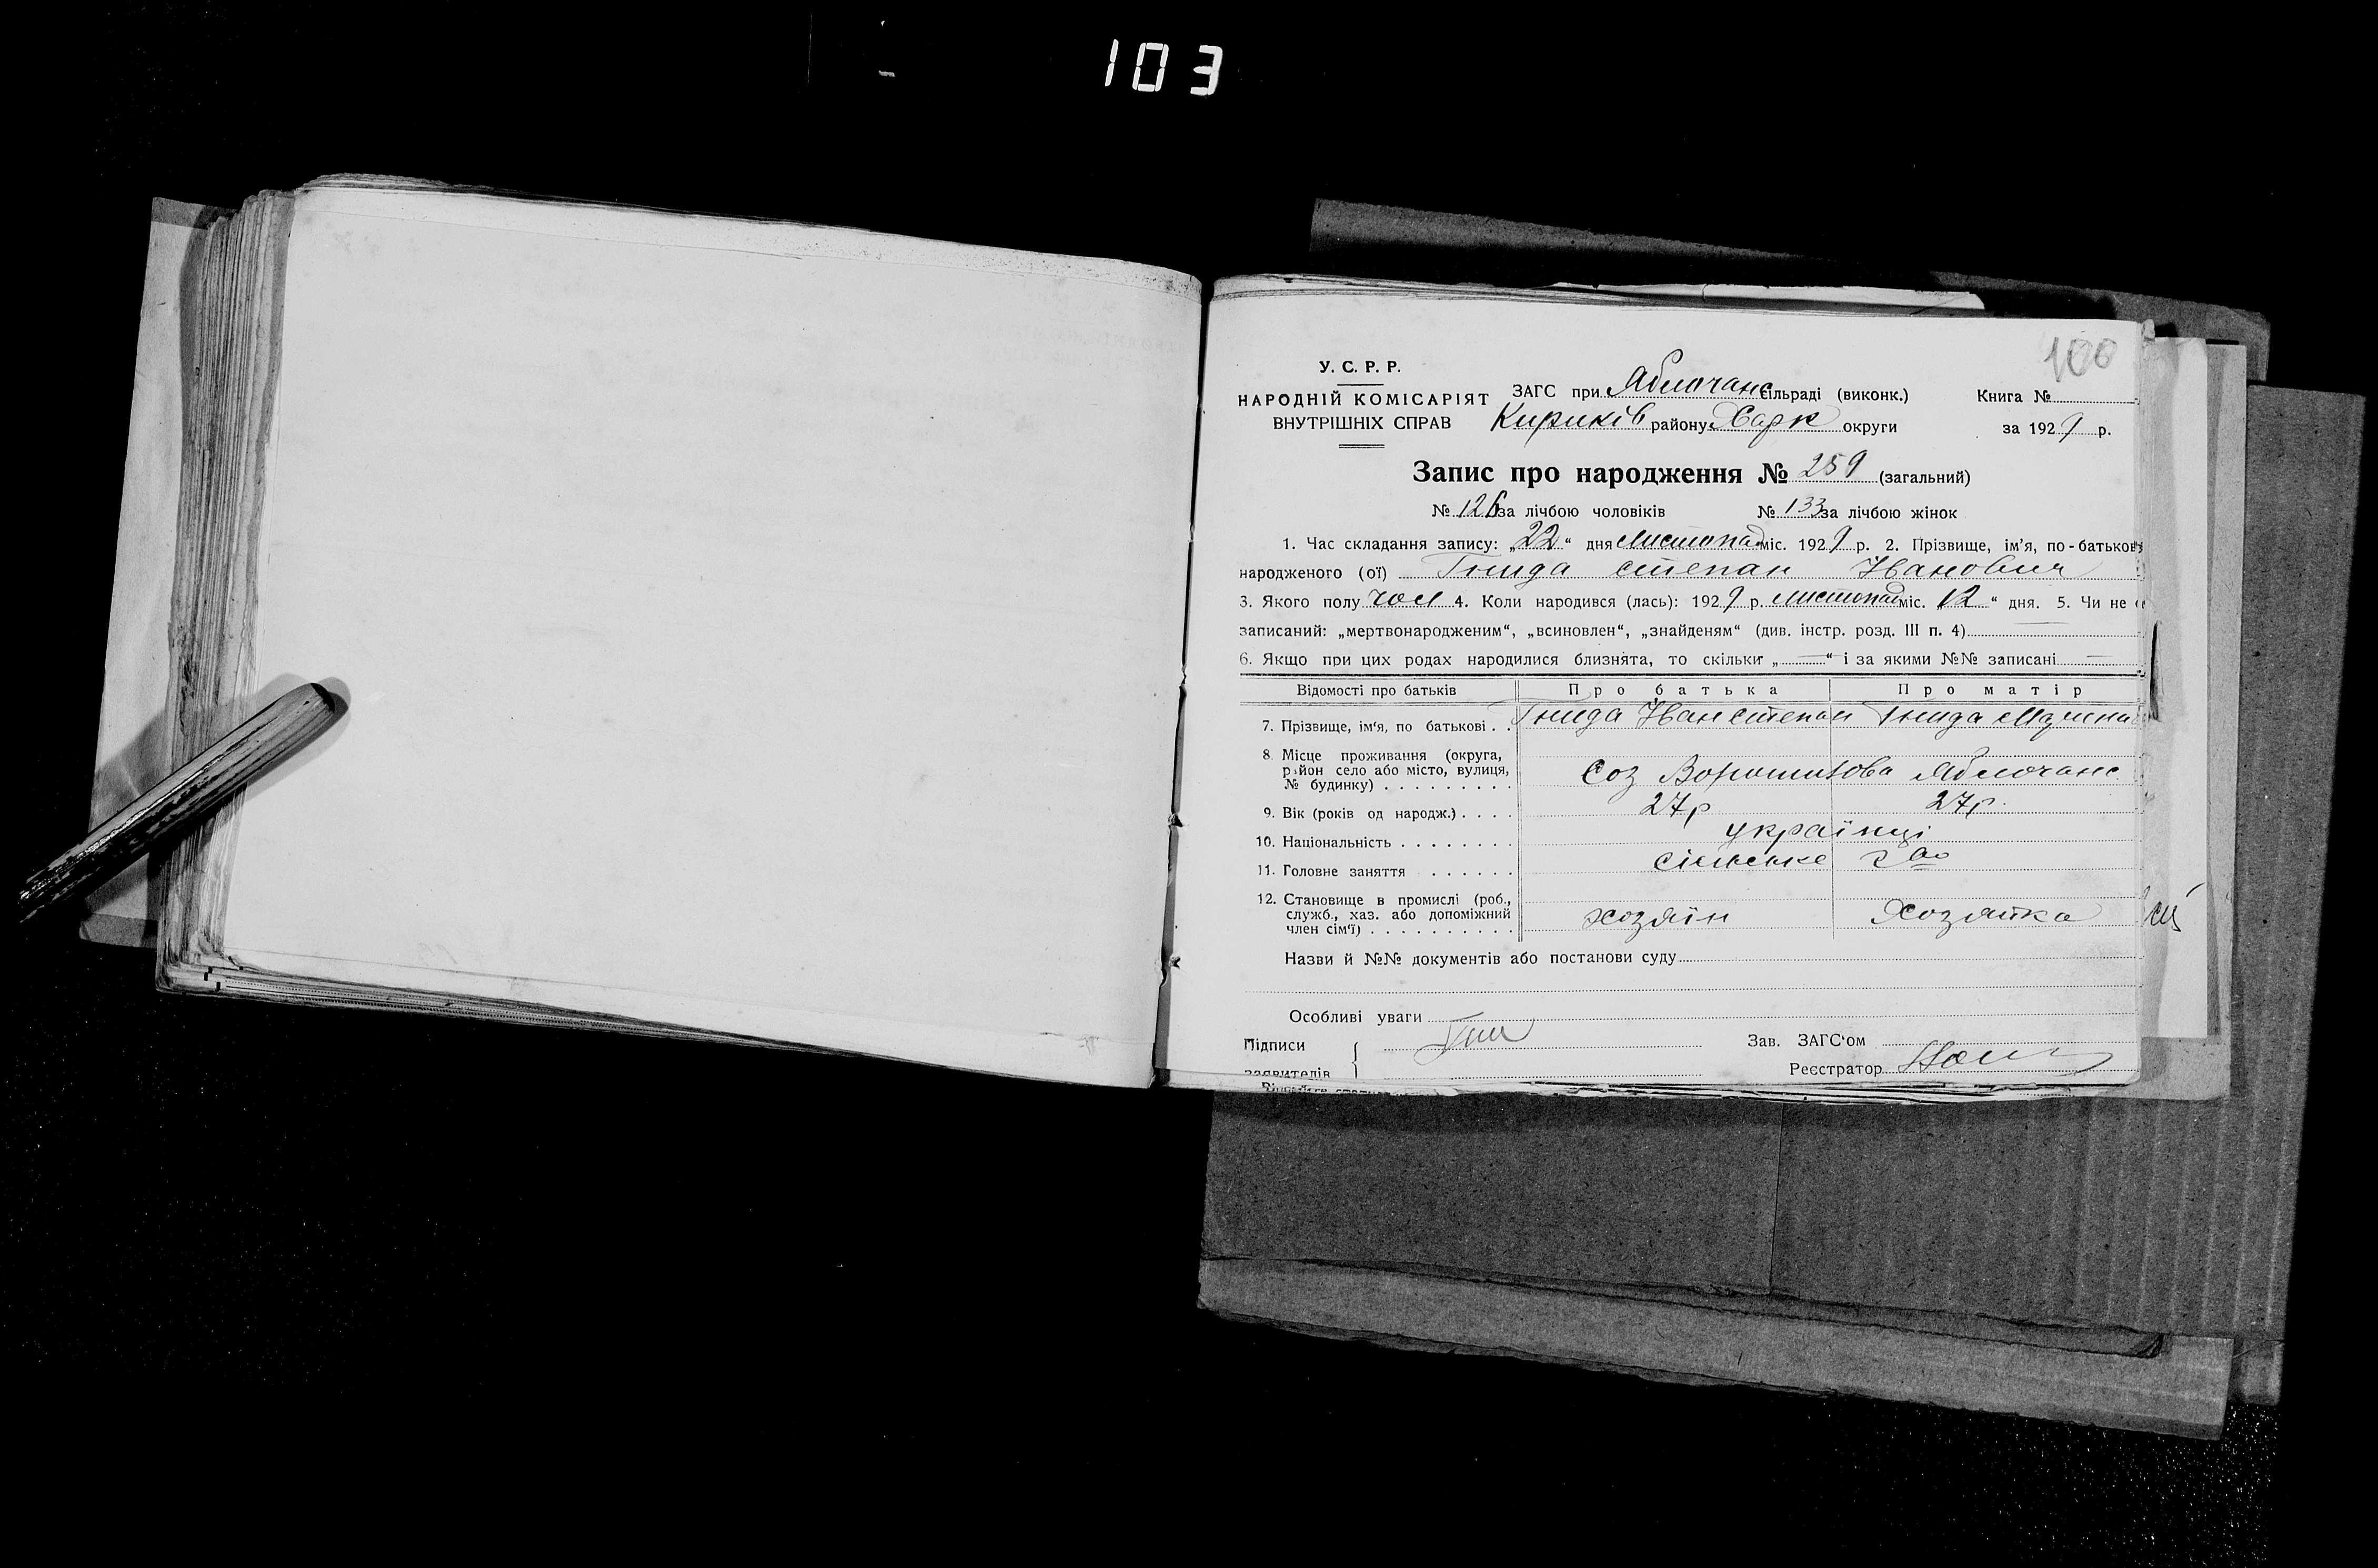 103
100
У. С. Р. Р.
НАРОДНІЙ КОМІСАРІЯТ
ВНУТРІШНІХ СПРАВ
ЗАГС при Яблочанс сільраді (виконк.)
Книга №
Кириків району Харк округи
за 1929 р.
Запис про народження № 259 (загальний)
№ 126 за лічбою чоловіків № 133 за лічбою жінок
1. Час складання запису: „22“ дня Листопад міс. 1929 р. 2. Прізвище, ім’я, по-батькові
народженого (ої) Гнида Степан Іванович
3. Якого полу чол 4. Коли народився (лась): 1929 р. листопад міс. „12“ дня. 5. Чи не
записаний: „мертвонародженим“, „всиновлен“, „знайденям“ (див. інстр. розд. III п. 4) —
6. Якщо при цих родах народилися близнята, то скільки „—“ і за якими №№ записані —
Відомості про батьків Про батька Про матір
7. Прізвище, ім‘я, по батькові . . Гнида Іван Степан Гнида
8. Місце проживання (округа,
район село або місто, вулиця,
№ будинку) . . . . . . . . . Соз Ворошилова Яблочанс
9. Вік (років од народж.) . . . . 27р 27р.
10. Національність . . . . . . . . українці
11. Головне заняття . . . . . . сільське г-во
12. Становище в промислі (роб.,
служб., хаз. або допоміжний
член сім‘ї) . . . . . . . . . . хозяїн Хозяйка
Назви й №№ документів або постанови суду
Особливі уваги
Підписи
заявителів
Зав. ЗАГС‘ом
Реєстратор